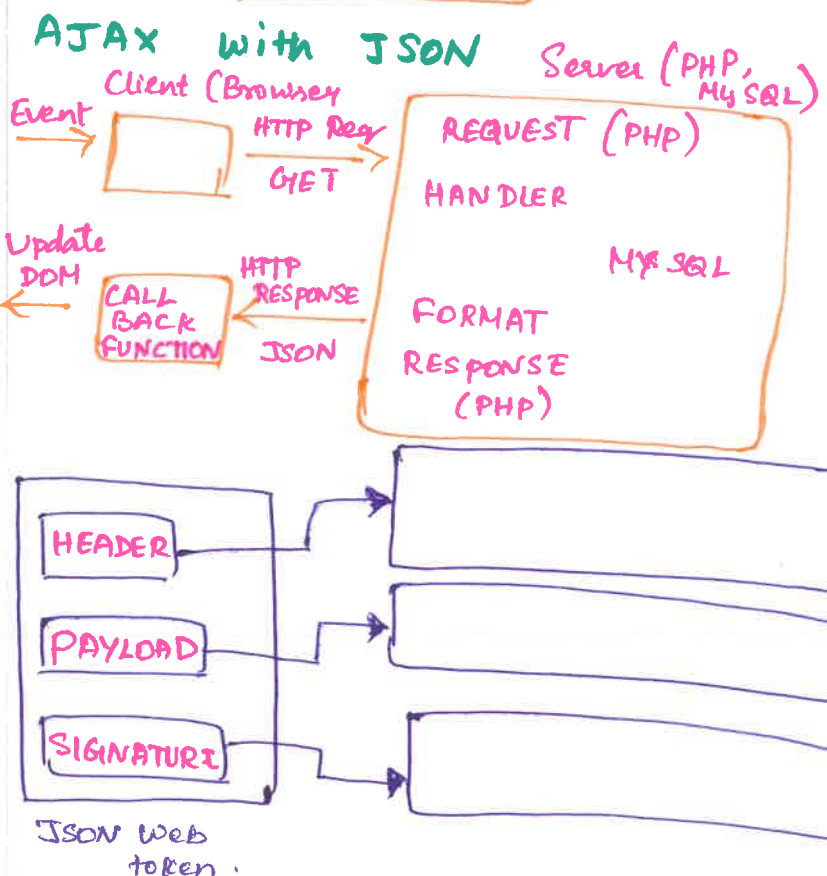 AJAX with JSON
Server (PHP,
MySQL)
Client (Browser
Event
HTTP Req
GET
REQUEST (PHP)
HANDLER
MY SQL
Update
DOM
CALL
BACK
FUNCTION
HTTP
RESPONSE
JSON
FORMAT
RESPONSE
(PHP)
HEADER
PAYLOAD
SIGNATURE
JSON Web
token.